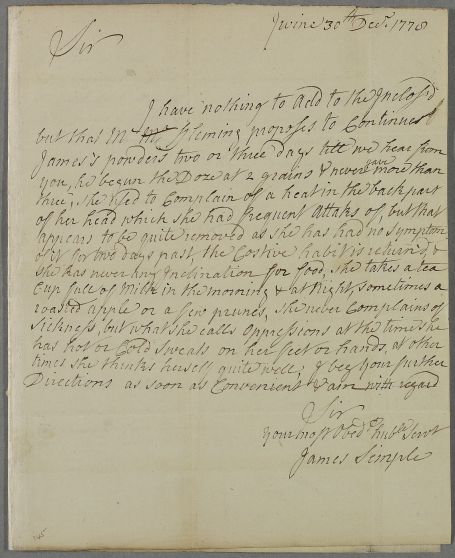 Irvine 30th Decr. 1778
Sir
I have nothing to add to the Inclos'd
but that Mr Fleming proposes to Continue
James's powders two or three days till we hear from
you, he begun the Doze at 2 grains & never gave more than
three; she used to Complain of a heat in the back part
of her head which she had frequent Attaks of, but that
appears to be quite removed as she has had no Symptom
of it for two days past, the Costive habit is return'd, &
she has never any Inclination for food, she takes a tea
Cup full of Milk in the morning & at Night, sometimes a
roasted apple or a few prunes, she never Complains of
Sickness, but what she calls Oppressions at the time she
has hot or Cold sweats on her feet or hands, at other
times she thinks herself quite well; I beg your further
Directions as soon as Convenient & am with regard
Sir
your most Obedt hule Servt
James Simple
145